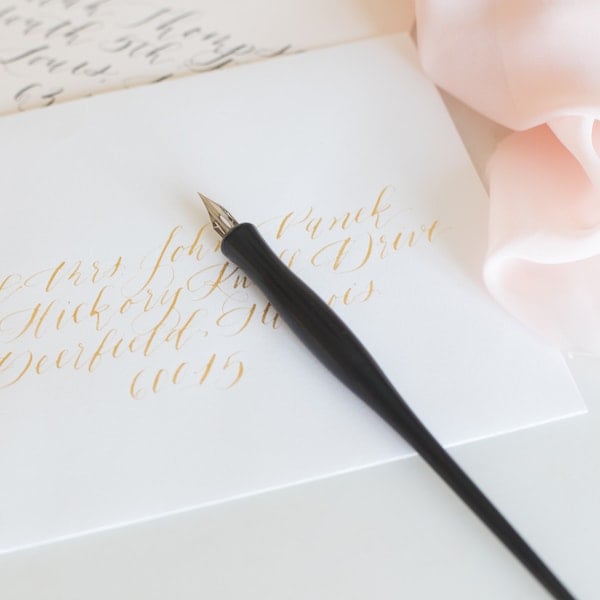 Thomps
South 5th
Louis,
63
& Mrs. John Panek
Hickory Knoll Drive
Deerfield, Illinois
60015